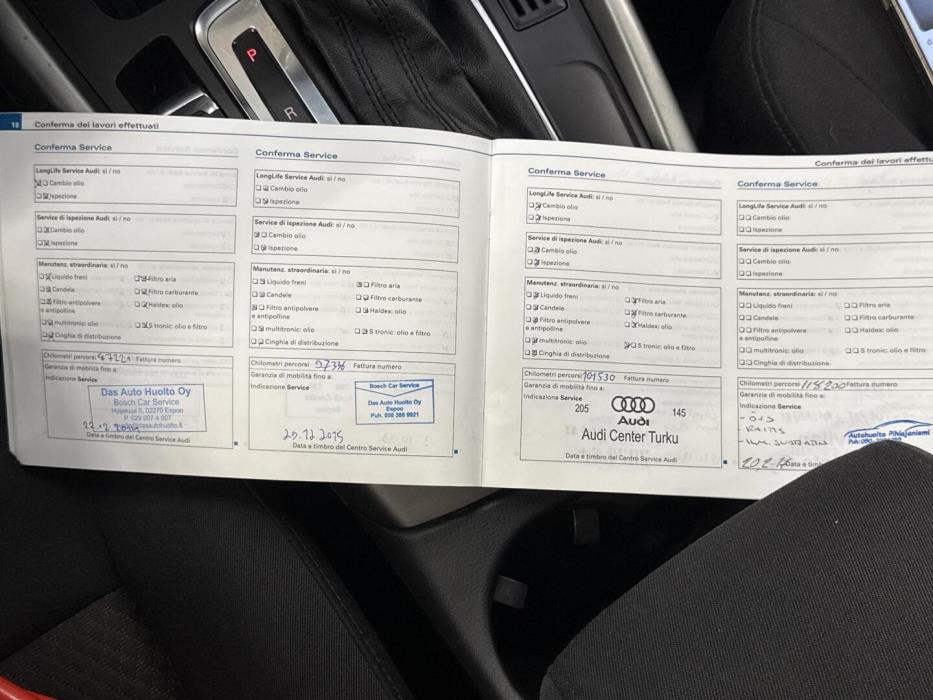 P
R
18 Conferma dei lavori effettuati
Conferma Service
LongLife Service Audi: sì / no
Cambio olio
Ispezione
Service di ispezione Audi: sì / no
Cambio olio
Ispezione
Manutenz. straordinaria: sì / no
Liquido freni
Filtro aria
Candele
Filtro carburante
Filtro antipolvere
e antipolline
Haldex: olio
multitronic: olio
S tronic: olio e filtro
Cinghia di distribuzione
Chilometri percorsi 87221 Fattura numero
Garanzia di mobilità fino a:
Indicazione Service
Das Auto Huolto Oy
Bosch Car Service
02270 Espoo
P. 029 007 4 007
22.12
Data e timbro del Centro Service Audi
Conferma Service
LongLife Service Audi: sì / no
Cambio olio
Ispezione
Service di ispezione Audi: sì / no
Cambio olio
Ispezione
Manutenz. straordinaria: sì / no
Liquido freni
Filtro aria
Candele
Filtro carburante
Filtro antipolvere
e antipolline
Haldex: olio
multitronic: olio
S tronic: olio e filtro
Cinghia di distribuzione
Chilometri percorsi 97336 Fattura numero
Garanzia di mobilità fino a:
Indicazione Service
Bosch Car Service
Das Auto Huolto Oy
Espoo
29.12.2015
Data e timbro del Centro Service Audi
Conferma Service
LongLife Service Audi: sì / no
Cambio olio
Ispezione
Service di ispezione Audi: sì / no
Cambio olio
Ispezione
Manutenz. straordinaria: sì / no
Liquido freni
Filtro aria
Candele
Filtro carburante
Filtro antipolvere
e antipolline
Haldex: olio
multitronic: olio
S tronic: olio e filtro
Cinghia di distribuzione
Chilometri percorsi 101530 Fattura numero
Garanzia di mobilità fino a:
Indicazione Service
205
145
Audi
Audi Center Turku
Data e timbro del Centro Service Audi
Conferma dei lavori effettu
Conferma Service
LongLife Service Audi: sì / no
Cambio olio
Ispezione
Service di ispezione Audi: sì / no
Cambio olio
Ispezione
Manutenz. straordinaria: sì / no
Liquido freni
Filtro aria
Candele
Filtro carburante
Filtro antipolvere
e antipolline
Haldex: olio
multitronic: olio
S tronic: olio e filtro
Cinghia di distribuzione
Chilometri percorsi 118200 Fattura numero
Garanzia di mobilità fino a:
Indicazione Service
- RAITIS
Autohuolto Pihlajaniemi
Data e tim